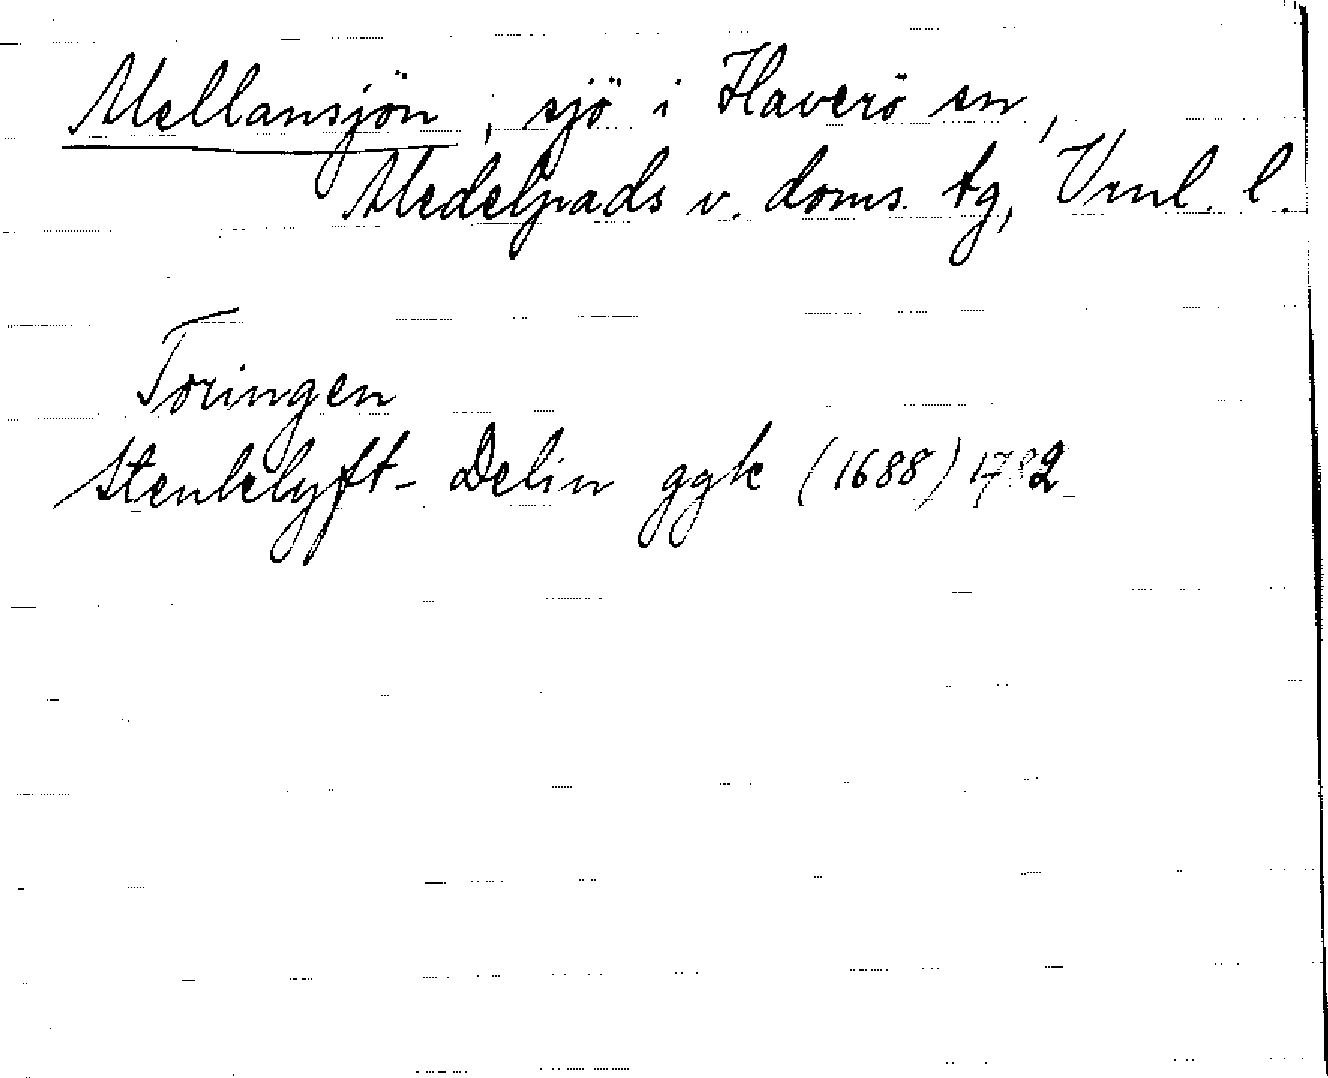 Mellansjön, sjö i Haverö sn,
Medelpads v. doms. tg, Vnl. l.
Toringen
Stenklyft- Delin ggk (1688) 1782